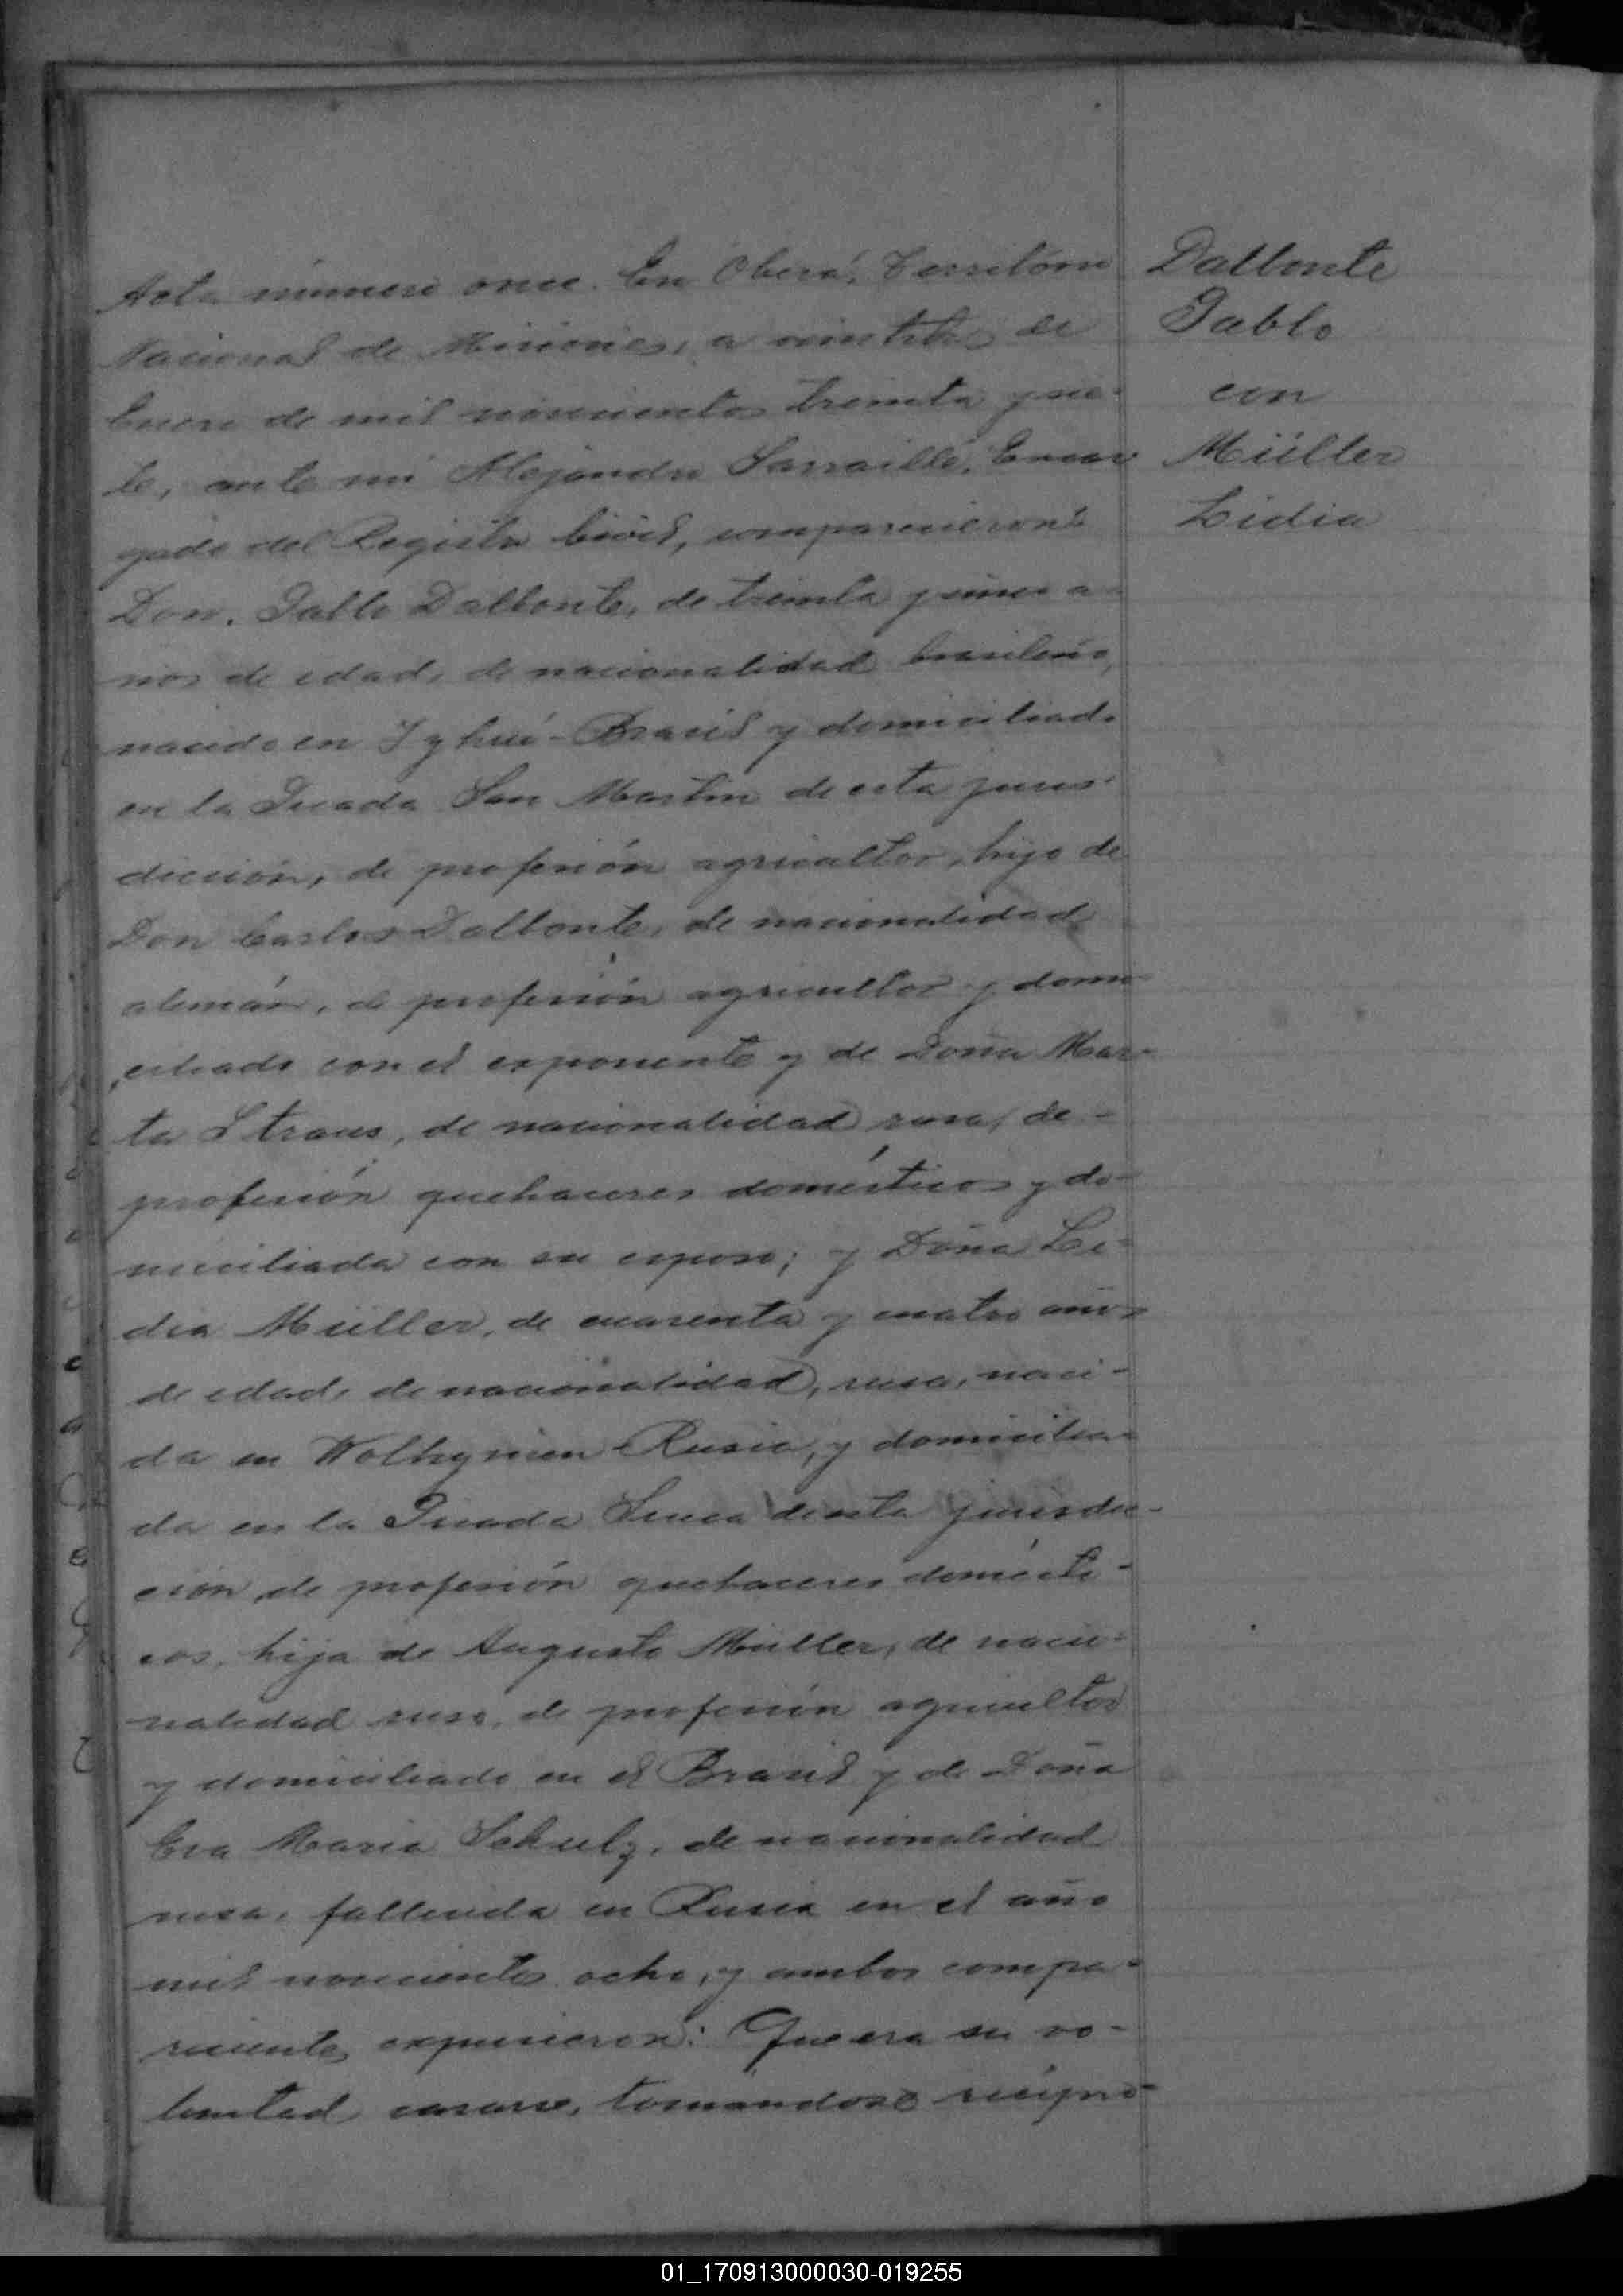 Acta número once. En Oberá, Territorio
Nacional de Misiones, a veintitrés de
Enero de mil novecientos treinta y sie-
te, ante mi Alejandro Sarraillé, Encar
gado del Registro Civil, comparecieron:
Don. Pablo Dalbonte, de treinta y cinco a-
ños de edad, de nacionalidad brasileño,
nacido en Iyhui-Brasil y domiciliado
en la Picada San Martin de esta juris-
dicción, de profesión agricultor, hijo de
Don Carlos Dalbonte, de nacionalidad
alemán, de profesión agricultor y domi-
ciliado con el exponente y de Doña Mar-
ta Straus, de nacionalidad rusa, de-
profesión quehaceres domésticos y do-
miciliada con su esposo; y Doña Li-
dia Müller, de cuarenta y cuatro años
de edad, de nacionalidad, rusa, naci-
da en Wolhynien-Rusia, y domicilia-
da en la Picada Sueca de esta jurisdic-
ción, de profesión quehaceres domésti-
cos, hija de Augusto Müller, de nacio-
nalidad ruso, de profesión agricultor
y domiciliado en el Brasil y de Doña
Eva Maria Schulz, de nacionalidad
rusa, fallecida en Rusia en el año
mil novecientos ocho, y ambos compa-
recientes expusieron: Que era su vo-
luntad casarse, tomandose recipro-
Dalbonte
Pablo
con
Müller
Lidia
01_170913000030-019255